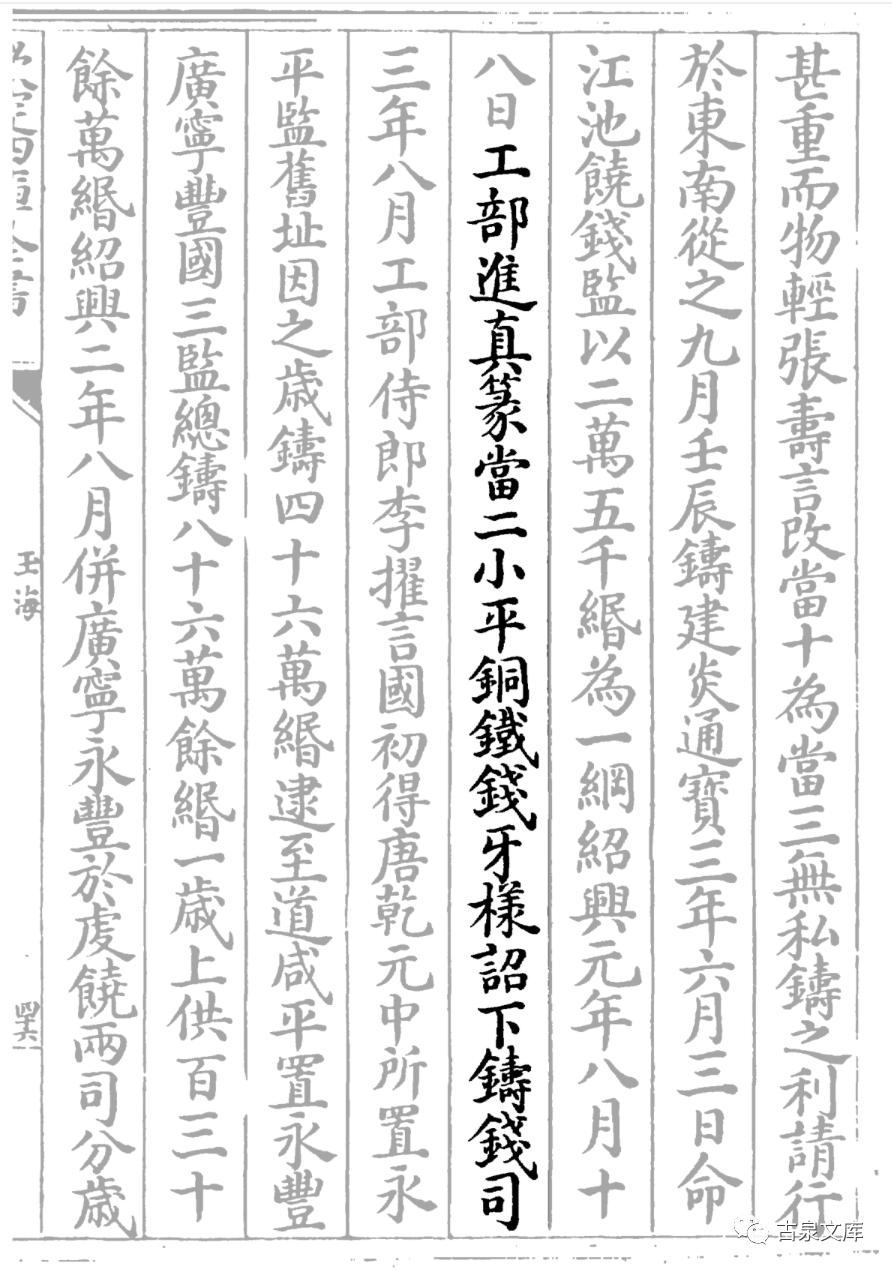 甚重而物輕張壽言改當十為當三無私鑄之利請行
於東南從之九月壬辰鑄建炎通寶三年六月三日命
江池饒錢監以二萬五千緡為一綱紹興元年八月十
八日工部進真篆當二小平銅鐵錢牙樣詔下鑄錢司
三年八月工部侍郎李擢言國初得唐乾元中所置永
平監舊址因之歲鑄四十六萬緡逮至道咸平置永豐
廣寧豐國三監總鑄八十六萬餘緡一歲上供百三十
餘萬緡紹興二年八月併廣寧永豐於虔饒兩司分歲
玉海
四六
古泉文库